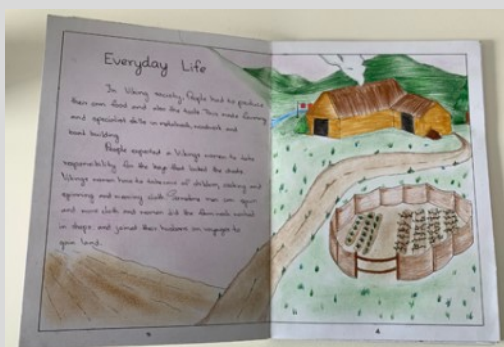 Everyday Life
In Viking society, People had to produce
their own food and also the tools. This made farming
and specialist skills in metalwork, woodwork and
boat building
People expected a Vikings women to take
responsibility for the keys that locked the
Vikings women have to take care of children, cooking and
spinning and weaving cloth. Sometimes men can spin
and cloth and women
in shops, and joined their husbans on voyages to
gain land.